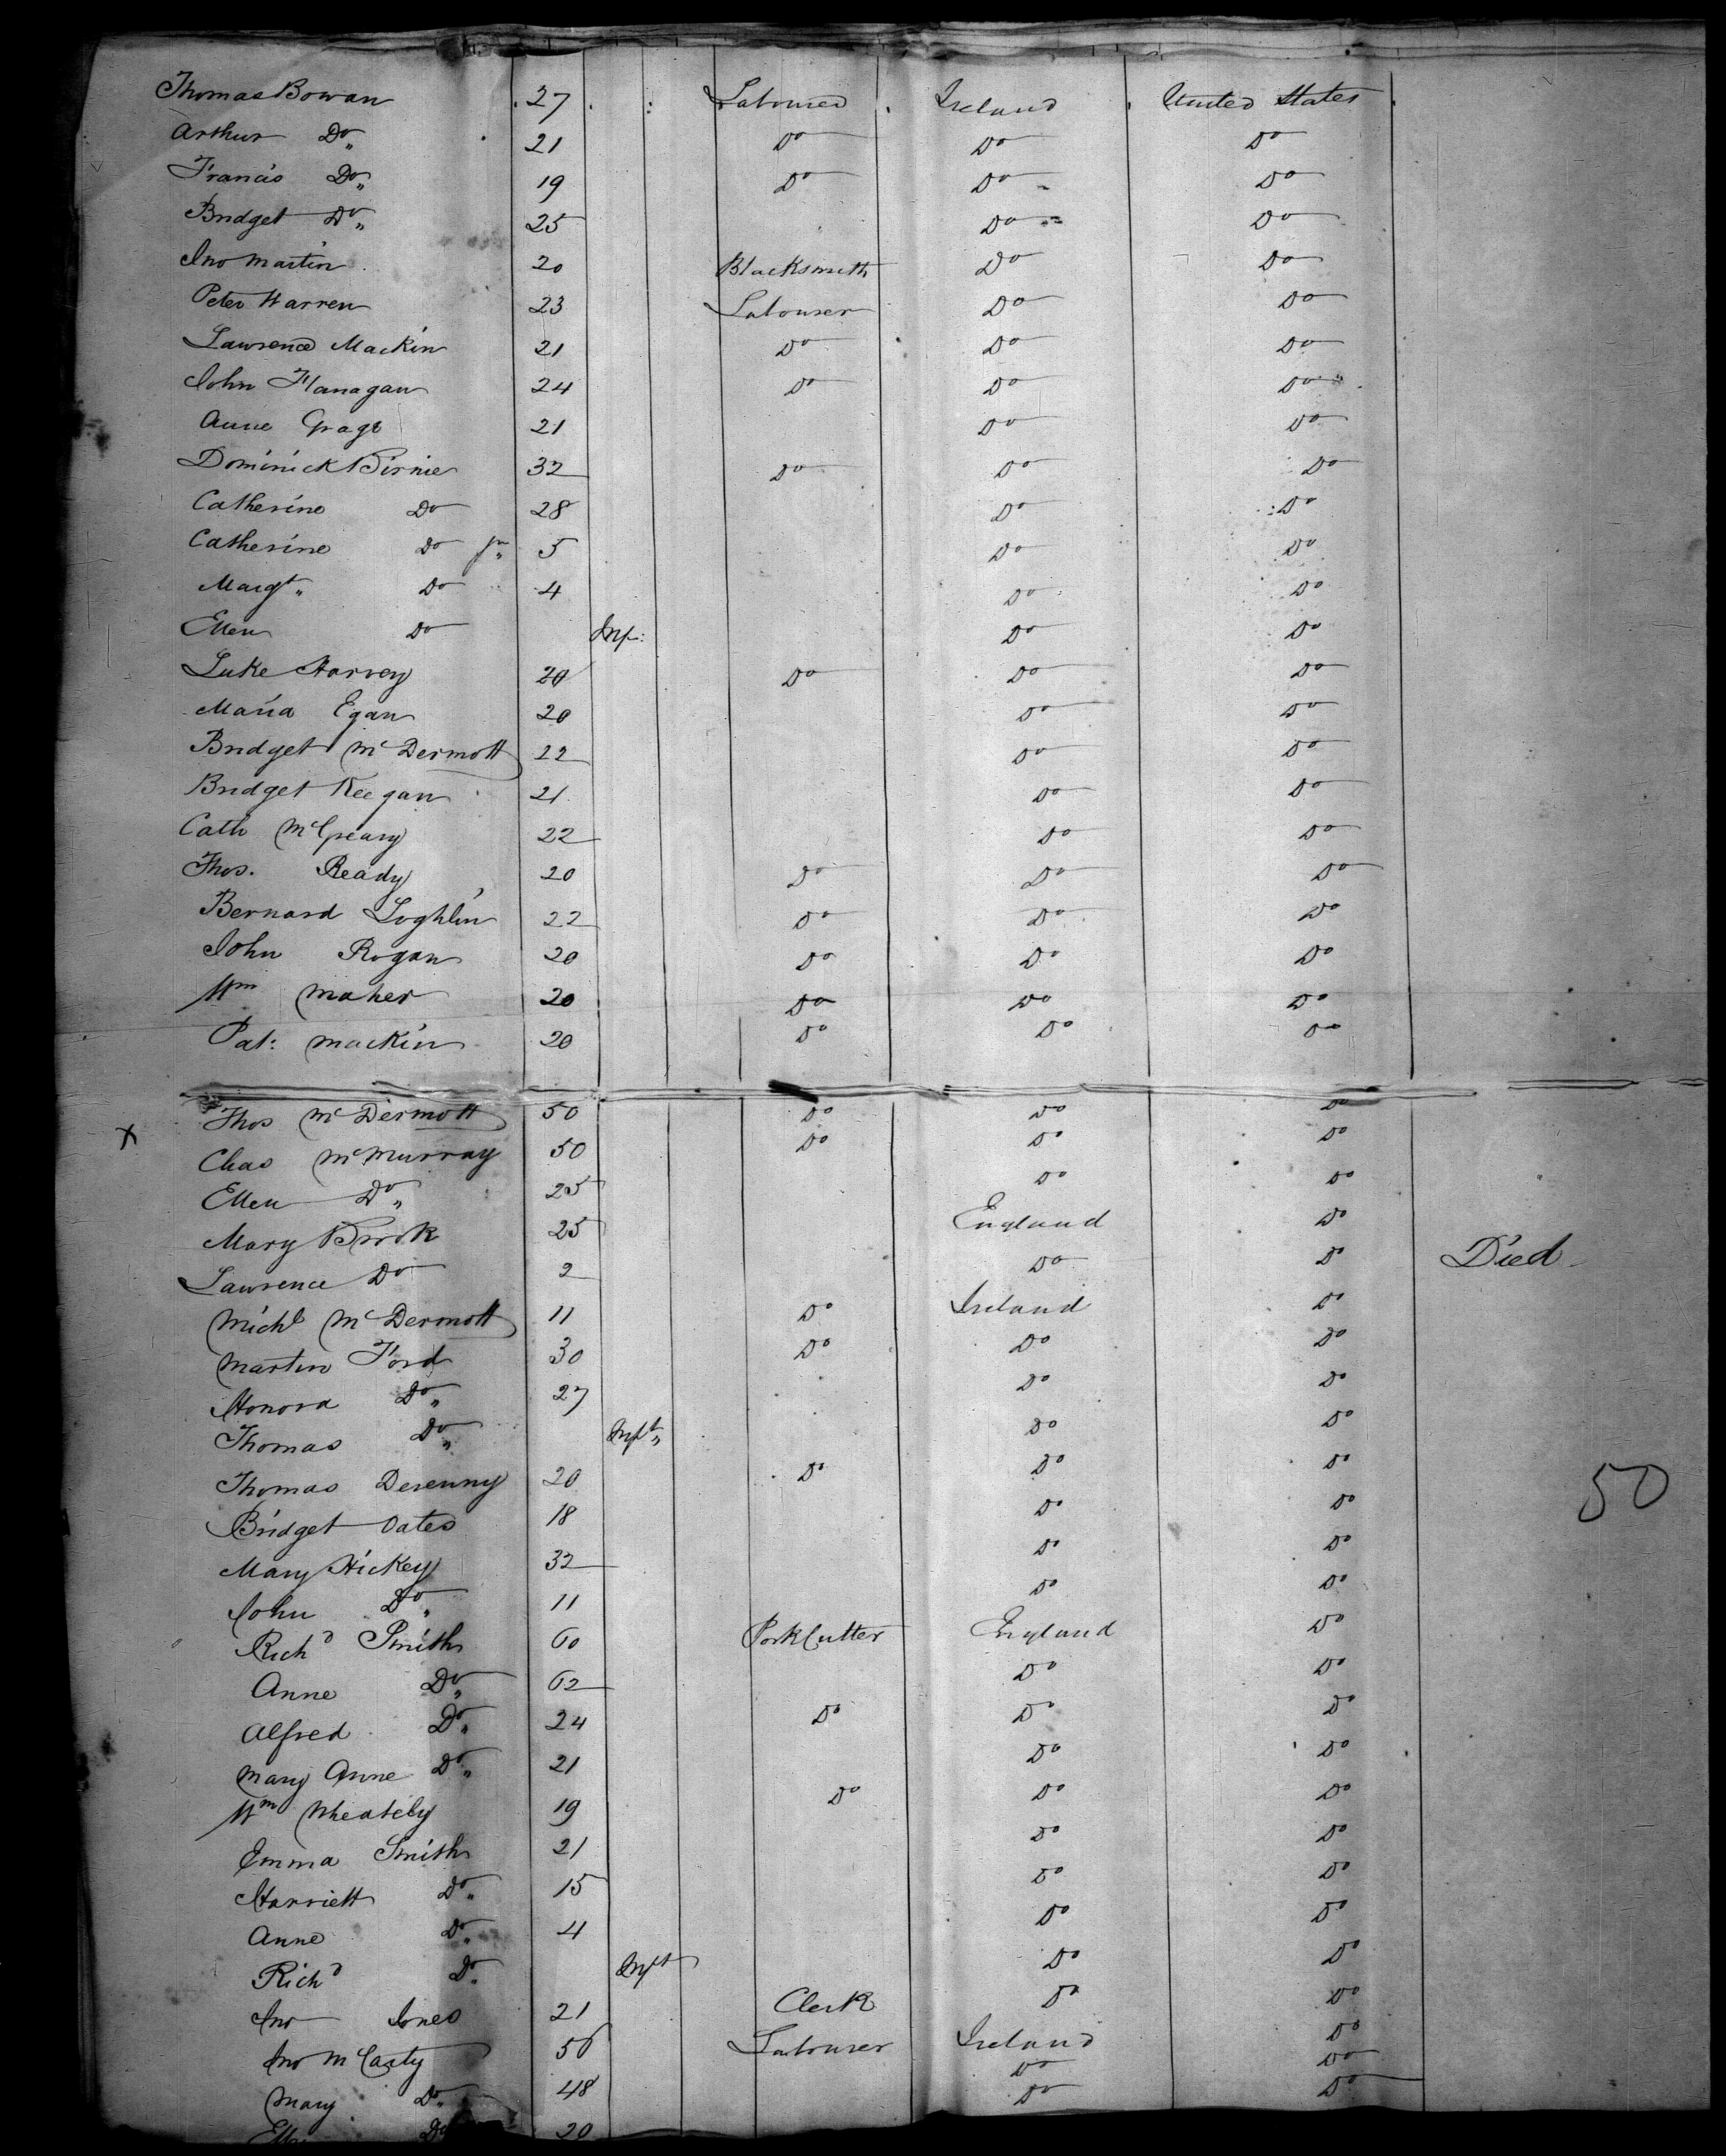 Thomas Bowan 27 Labourer Ireland United States
Arthur Do 21 Do Do Do
Francis Do 19 Do Do Do
Bridget Do 25 Do Do
Jno Martin 20 Blacksmith Do Do
Peter Warren 23 Labourer Do Do
Lawrence Mackin 21 Do Do Do
John Flanagan 24 Do Do Do
Anne 21 Do Do
Dominick Birnie 32 Do Do Do
Catherine Do 28 Do Do
Catherine Do Jnr 5 Do Do
Margt Do 4 Do Do
Ellen Do Inf: Do Do
Luke Harvey 20 Do Do Do
Maria Egan 20 Do Do
Bridget McDermott 22 Do Do
Bridget Keegan 21 Do Do
Cath McCreary 22 Do Do
Thos. Ready 20 Do Do Do
Bernard Loghlin 22 Do Do Do
John Rogan 20 Do Do Do
Wm Maher 20 Do Do Do
Pat: Mackin 20 Do Do Do
Thos McDermott 50 Do Do Do
x Chas McMurray 50 Do Do Do
Ellen Do 25 Do Do
Mary Brook 25 England Do
Lawrence Do 2 Do Do Died
Michl McDermott 11 Do Ireland Do
Martin Ford 30 Do Do Do
Honora Do 27 Do Do
Thomas Do Inft Do Do
Thomas Derenny 20 Do Do Do
Bridget Oates 18 Do Do
50
Mary Hickey 32 Do Do
John Do 11 Do Do
Richd Smith 60 Pork Cutter England Do
Anne Do 62 Do Do
Alfred Do 24 Do Do Do
Mary Anne Do 21 Do Do
Wm Wheately 19 Do Do Do
Emma Smith 21 Do Do
Harriett Do 15 Do Do
Anne Do 4 Do Do
Richd Do Inft Do Do
Jno Jones 21 Clerk Do Do
Jno McCarty 50 Labourer Ireland Do
Mary Do 48 Do Do
Do 20 Do Do